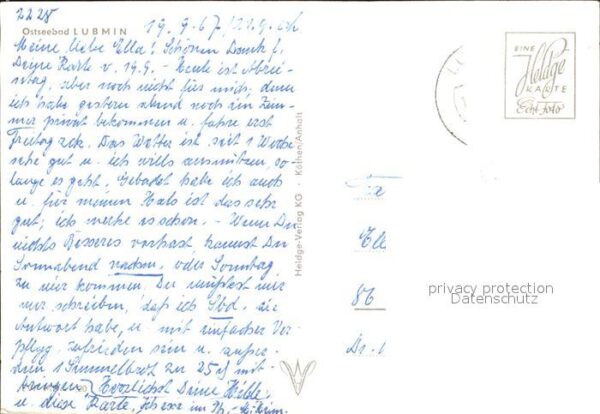 2228
Ostseebad LUBMIN
19.9.67
Meine liebe Ella! Schönen Dank f.
Deine Karte v. 19.9. - Heute ist Abrei-
setag, aber noch nicht für mich, denn
ich habe gestern abend noch ein Zim-
mer privat bekommen u. fahre erst
Freitag zck. Das Wetter ist seit 1 Woche
sehr gut u. ich wills ausnützen, so-
lange es geht. Gebadet habe ich auch
u. für meinen Hals ist das sehr
gut; ich merke es schon. - Wenn Du
nichts Besseres vorhast kannst Du
Sonnabend nachm. oder Sonntag
zu mir kommen. Du müsstest mir
nur schreiben, daß ich Sbd. die
Antwort habe, u. mit einfacher Ver-
pflegg. zufrieden sein u. außer-
dem 1 Simmelbrot zu 25 mit-
bringen. Herzlichst Deine Hilde
u. diese Karte,
Heldge-Verlag KG · Köthen/Anhalt
EINE
Heldge
KARTE
Echt Foto
Ella
86
privacy protection
Datenschutz